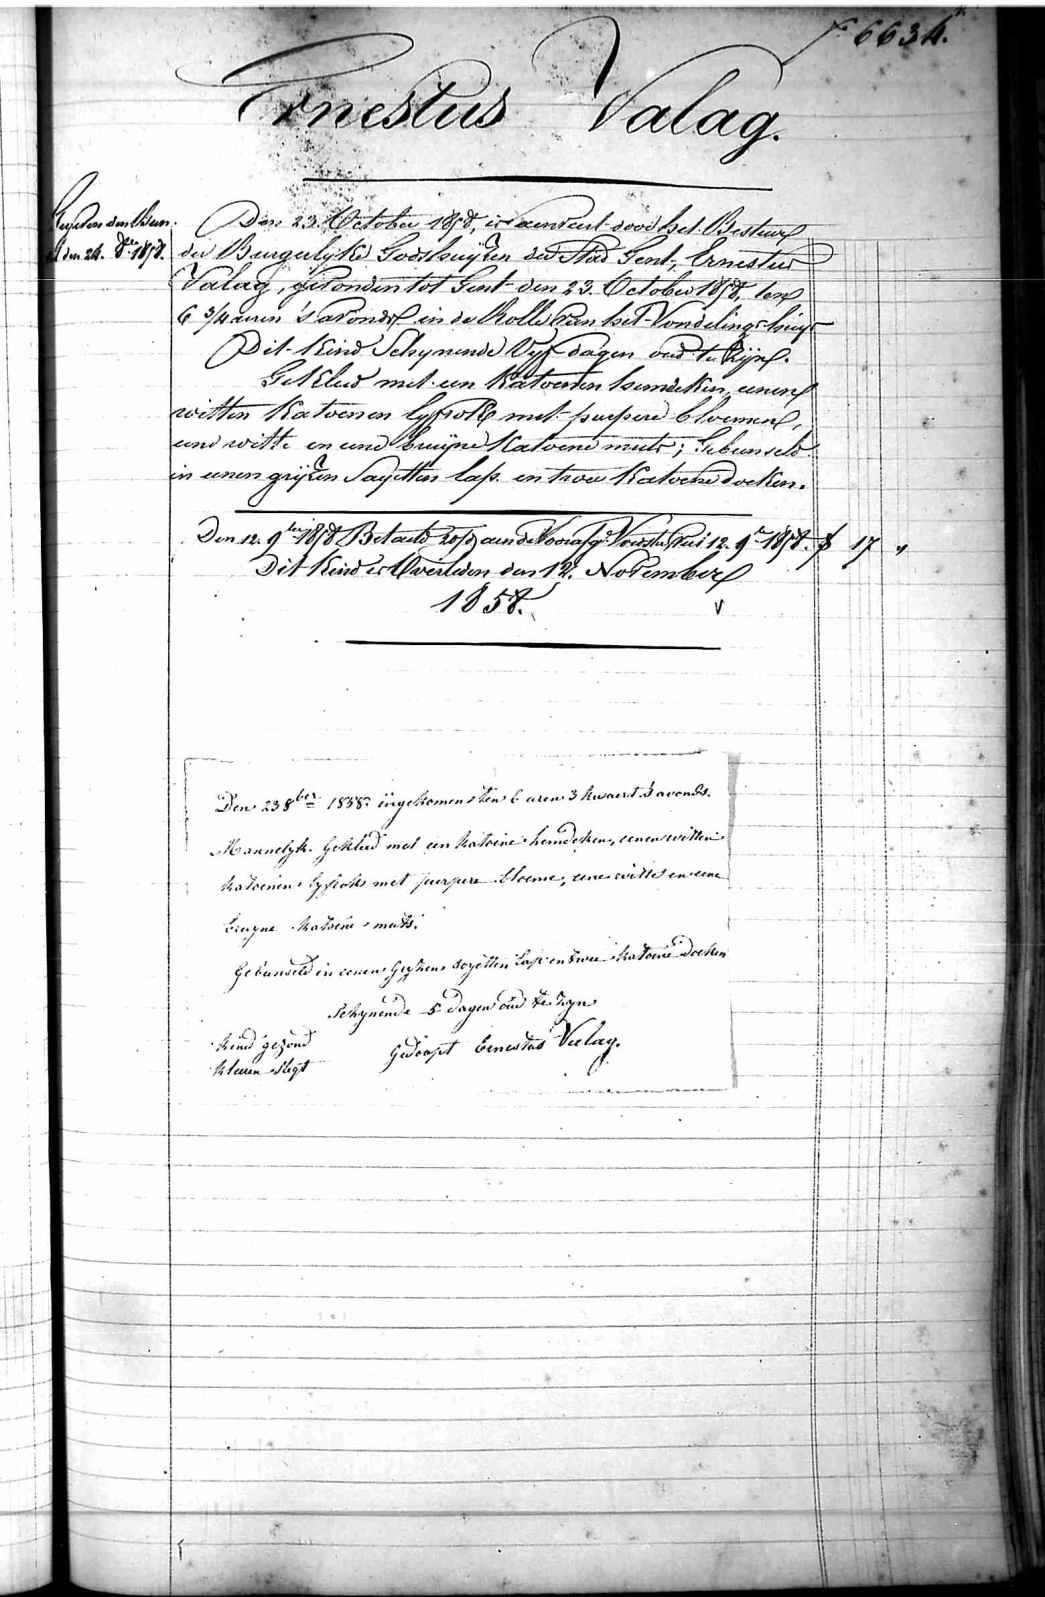 6634.
Ernestus Valag.
den 24. 8bre 1858.
Den 23. October 1858, is aenveert door het Bestuur
der Burgerlyke Godshuyzen der Stad Gent, Ernestus
Valag, gevonden tot Gent den 23. October 1858, ten
6 3/4 uren 's avonds in de Rolle van het Vondelingshuys
Dit Kind Schynende Vyf dagen oud te Zyn.
Gekleed met een Katoenen hemdeken, eenen
witten Katoenen lyfrok met purpere bloemen,
eene witte en eene bruyne Katoene muts; Gebunseld
in eenen gryzen Sayetten lap en twee Katoene doeken.
Den 12. 9ber 1858 Betaeld aen de 12. 9r 1858. f 17 "
Dit Kind is Overleden den 12. November
1858. v
Den 23 8ber 1858 ingekomen ten 6 uren 3 kwaert s'avonds.
Mannelyk. Gekleed met een Katoene hemdeken, eenen witten
Katoenen lyfrok met purpere bloeme, eene witte en eene
bruyne Katoene muts.
Gebunseld in eenen Gryzen sayetten lap en twee Katoene doeken
Schynende 5 dagen oud te Zyn
Kind gezond
Gedoopt Ernestus Valag.
Kleeren slegt